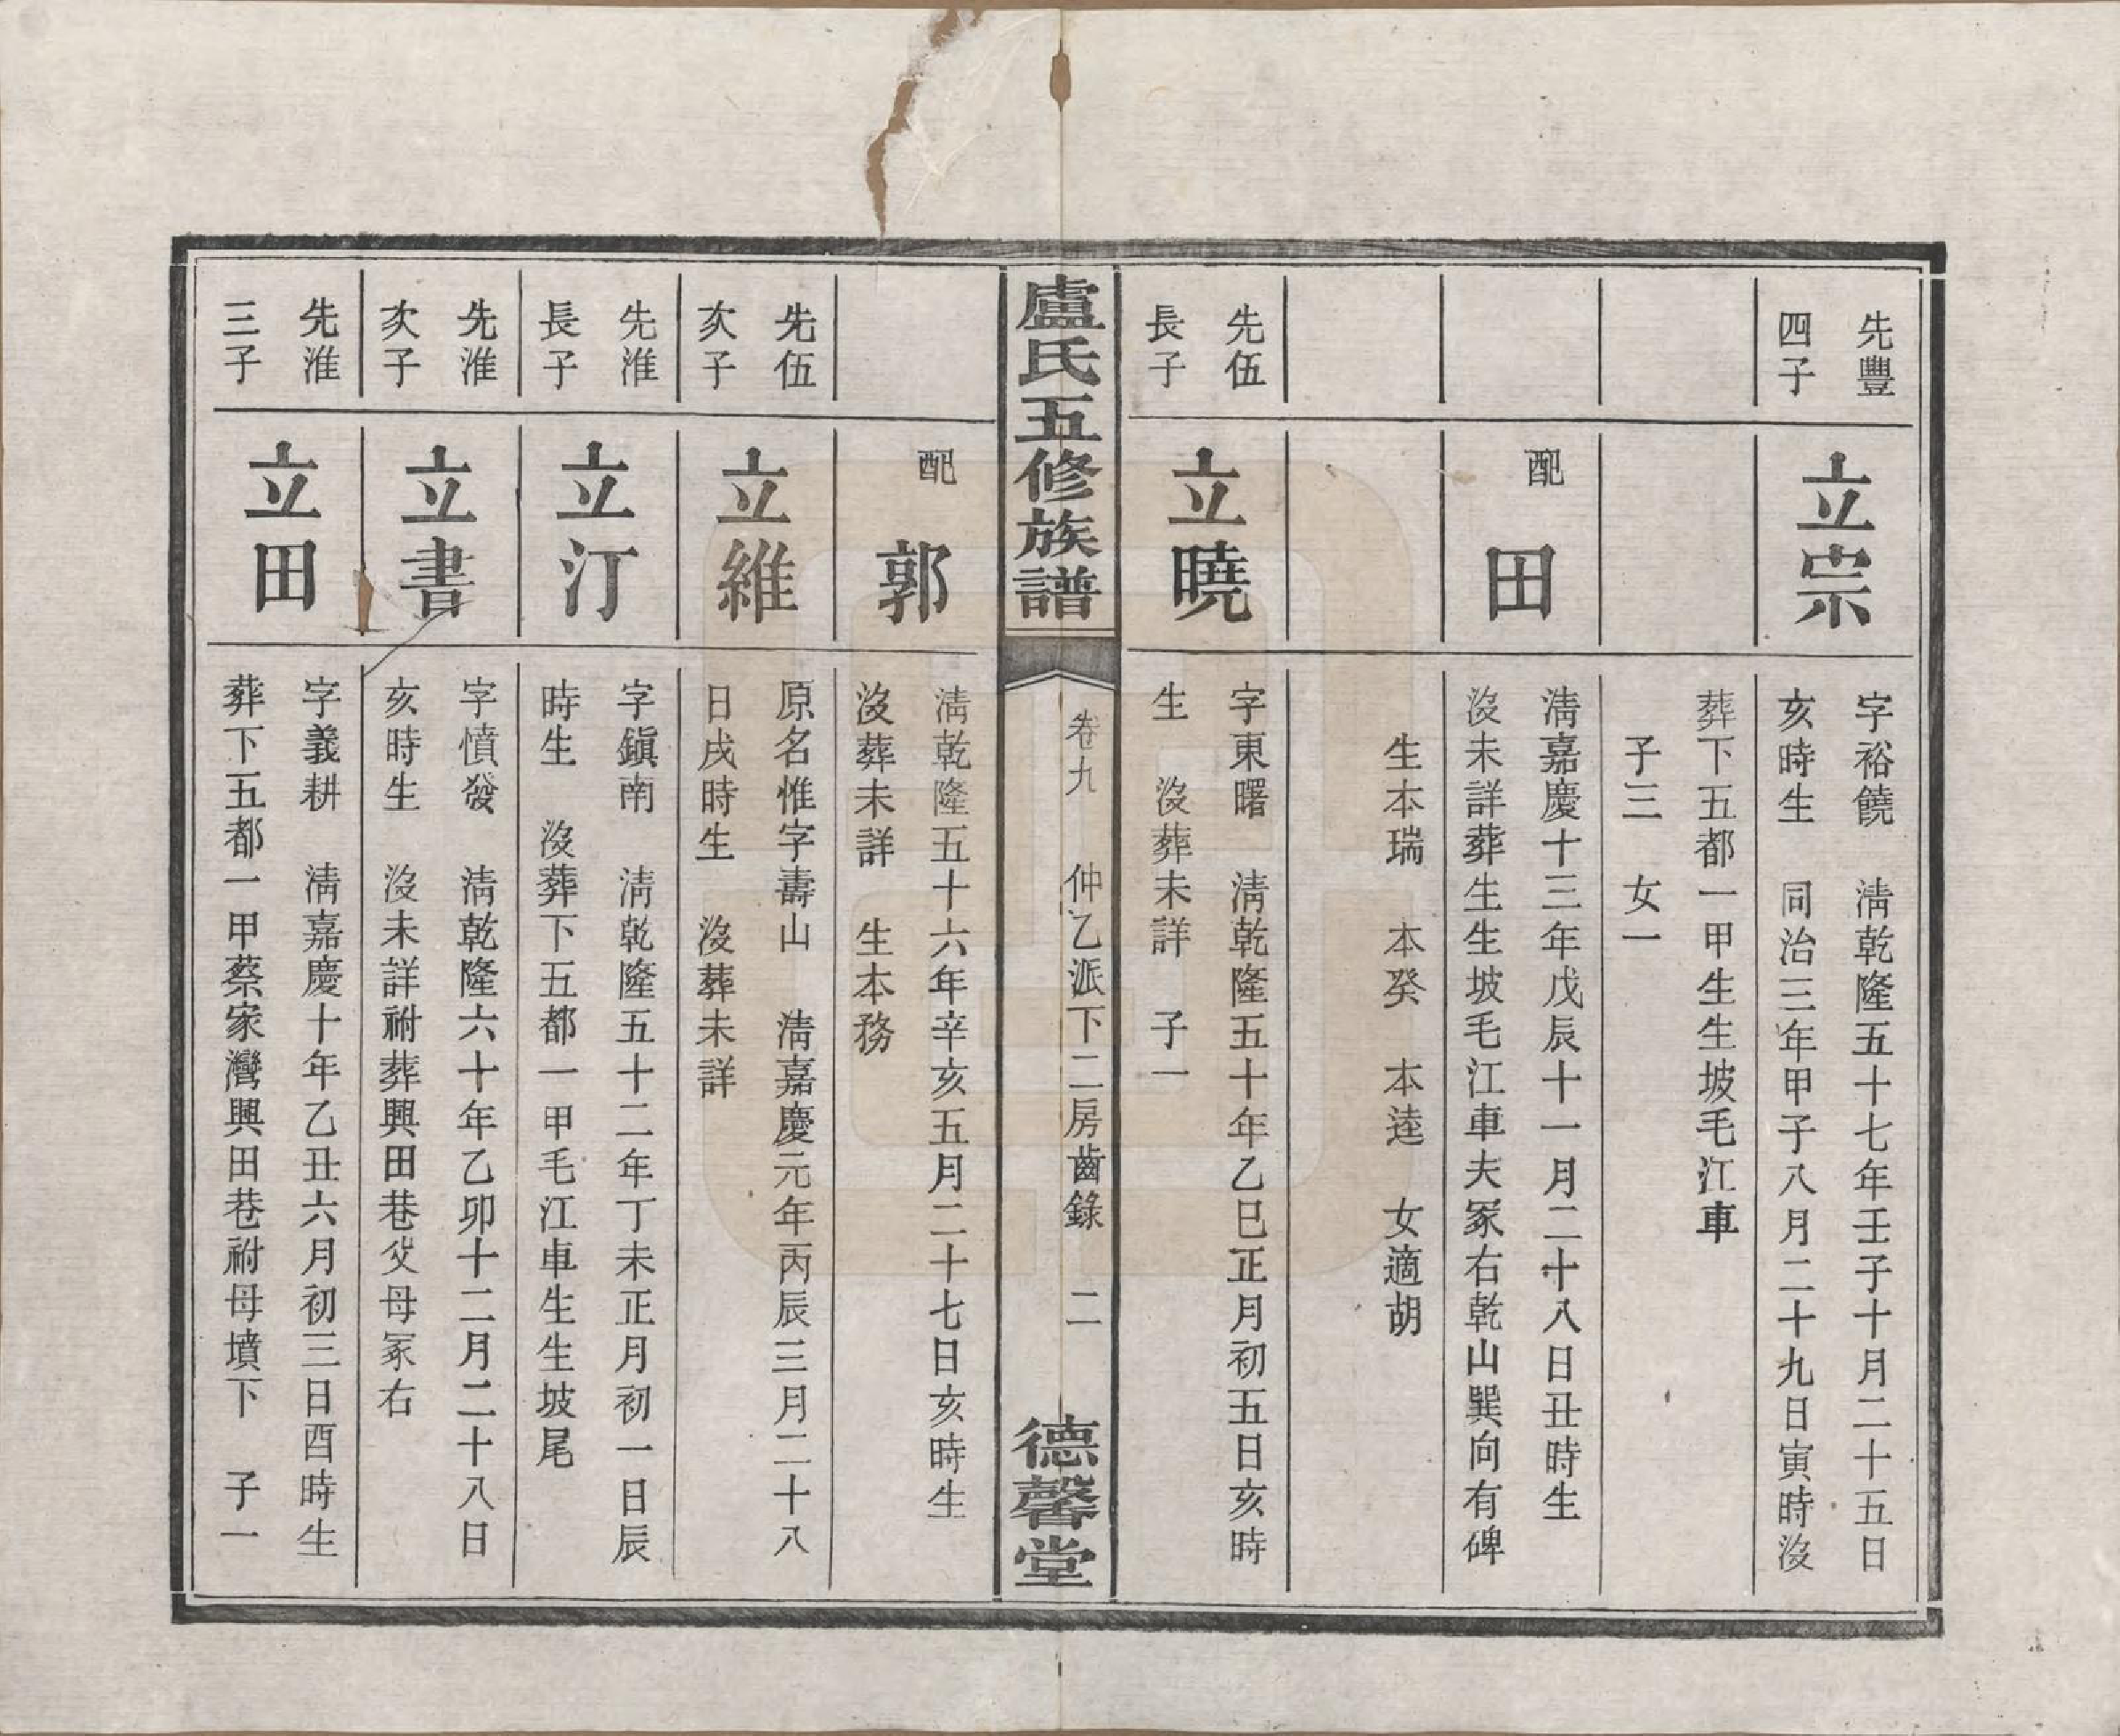 先豐
四子
立宗
字裕饒　淸乾隆五十七年壬子十月二十五日
亥時生　同治三年甲子八月二十九日寅時沒
葬下五都一甲生生坡毛江車
子三　女一
配　田
淸嘉慶十三年戊辰十一月二十八日丑時生
沒未詳葬生生坡毛江車夫冢右乾山巽向有碑
生本瑞　本癸　本逵　女適胡
先伍
長子
立曉
字東曙　淸乾隆五十年乙巳正月初五日亥時
生　沒葬未詳　子一
盧氏五修族譜
卷九　仲乙派下二房齒錄　二
德馨堂
配　郭
淸乾隆五十六年辛亥五月二十七日亥時生
沒葬未詳　生本務
先伍
次子
立維
原名惟字壽山　淸嘉慶元年丙辰三月二十八
日戌時生　沒葬未詳
先淮
長子
立汀
字鎭南　淸乾隆五十二年丁未正月初一日辰
時生　沒葬下五都一甲毛江車生生坡尾
先淮
次子
立書
字憤發　淸乾隆六十年乙卯十二月二十八日
亥時生　沒未詳祔葬興田巷父母冢右
先淮
三子
立田
字義耕　淸嘉慶十年乙丑六月初三日酉時生
葬下五都一甲蔡家灣興田巷祔母墳下　子一